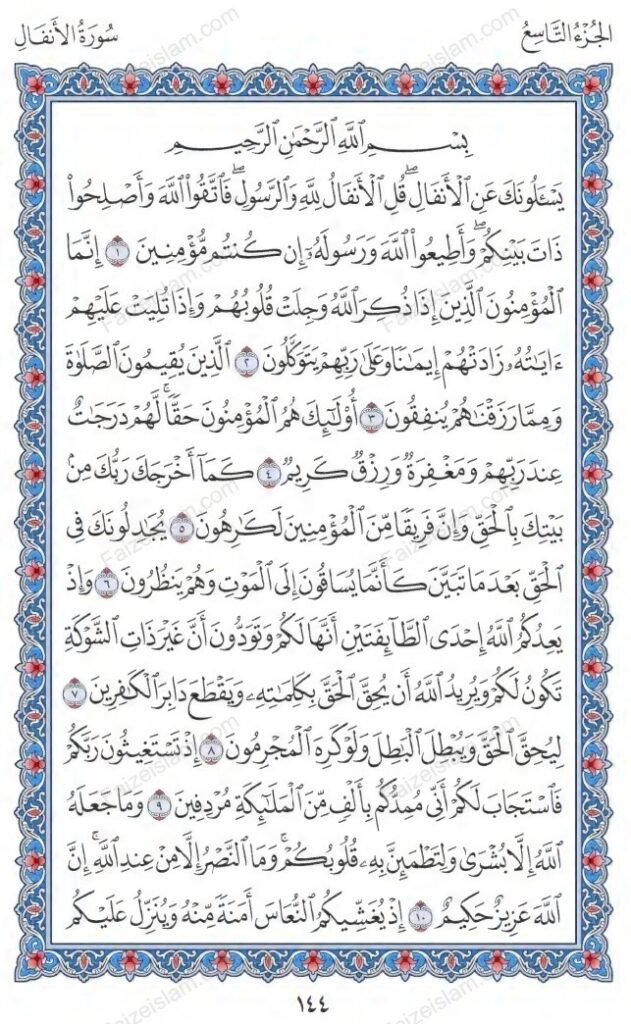 الجُزْءُ التَّاسِعُ
سُورَةُ الأَنفَال
بِسْمِ ٱللَّهِ ٱلرَّحْمَٰنِ ٱلرَّحِيمِ
يَسْـَٔلُونَكَ عَنِ ٱلْأَنفَالِۖ قُلِ ٱلْأَنفَالُ لِلَّهِ وَٱلرَّسُولِۖ فَٱتَّقُوا۟ ٱللَّهَ وَأَصْلِحُوا۟
ذَاتَ بَيْنِكُمْۖ وَأَطِيعُوا۟ ٱللَّهَ وَرَسُولَهُۥٓ إِن كُنتُم مُّؤْمِنِينَ ١ إِنَّمَا
ٱلْمُؤْمِنُونَ ٱلَّذِينَ إِذَا ذُكِرَ ٱللَّهُ وَجِلَتْ قُلُوبُهُمْ وَإِذَا تُلِيَتْ عَلَيْهِمْ
ءَايَٰتُهُۥ زَادَتْهُمْ إِيمَٰنًا وَعَلَىٰ رَبِّهِمْ يَتَوَكَّلُونَ ٢ ٱلَّذِينَ يُقِيمُونَ ٱلصَّلَوٰةَ
وَمِمَّا رَزَقْنَٰهُمْ يُنفِقُونَ ٣ أُو۟لَٰٓئِكَ هُمُ ٱلْمُؤْمِنُونَ حَقًّاۚ لَّهُمْ دَرَجَٰتٌ
عِندَ رَبِّهِمْ وَمَغْفِرَةٌ وَرِزْقٌ كَرِيمٌ ٤ كَمَآ أَخْرَجَكَ رَبُّكَ مِنۢ
بَيْتِكَ بِٱلْحَقِّ وَإِنَّ فَرِيقًا مِّنَ ٱلْمُؤْمِنِينَ لَكَٰرِهُونَ ٥ يُجَٰدِلُونَكَ فِى
ٱلْحَقِّ بَعْدَ مَا تَبَيَّنَ كَأَنَّمَا يُسَاقُونَ إِلَى ٱلْمَوْتِ وَهُمْ يَنظُرُونَ ٦ وَإِذْ
يَعِدُكُمُ ٱللَّهُ إِحْدَى ٱلطَّآئِفَتَيْنِ أَنَّهَا لَكُمْ وَتَوَدُّونَ أَنَّ غَيْرَ ذَاتِ ٱلشَّوْكَةِ
تَكُونُ لَكُمْ وَيُرِيدُ ٱللَّهُ أَن يُحِقَّ ٱلْحَقَّ بِكَلِمَٰتِهِۦ وَيَقْطَعَ دَابِرَ ٱلْكَٰفِرِينَ ٧
لِيُحِقَّ ٱلْحَقَّ وَيُبْطِلَ ٱلْبَٰطِلَ وَلَوْ كَرِهَ ٱلْمُجْرِمُونَ ٨ إِذْ تَسْتَغِيثُونَ رَبَّكُمْ
فَٱسْتَجَابَ لَكُمْ أَنِّى مُمِدُّكُم بِأَلْفٍ مِّنَ ٱلْمَلَٰٓئِكَةِ مُرْدِفِينَ ٩ وَمَا جَعَلَهُ
ٱللَّهُ إِلَّا بُشْرَىٰ وَلِتَطْمَئِنَّ بِهِۦ قُلُوبُكُمْۚ وَمَا ٱلنَّصْرُ إِلَّا مِنْ عِندِ ٱللَّهِۚ إِنَّ
ٱللَّهَ عَزِيزٌ حَكِيمٌ ١٠ إِذْ يُغَشِّيكُمُ ٱلنُّعَاسَ أَمَنَةً مِّنْهُ وَيُنَزِّلُ عَلَيْكُم
١٤٤
Faizeislam.com